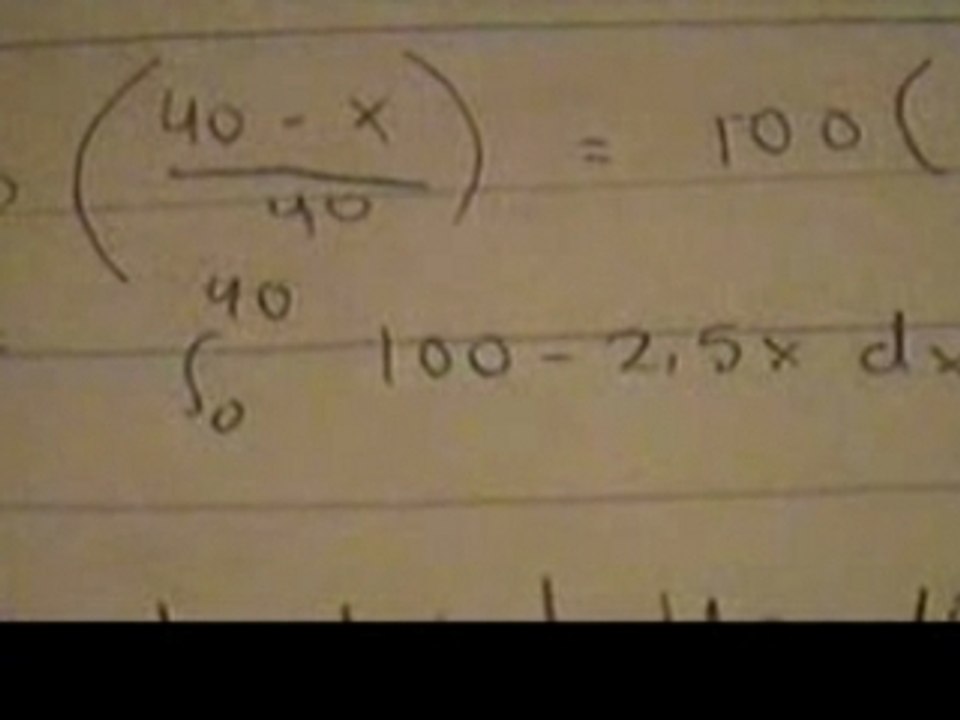 (40 - x / 40) = 100 (
∫₀⁴⁰ 100 - 2.5x dx